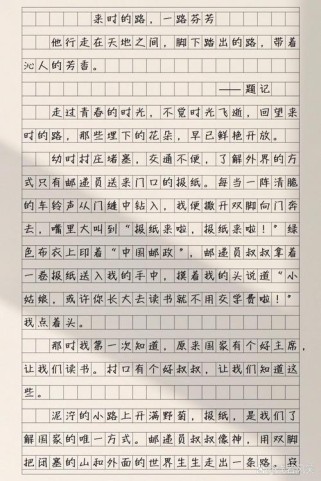 来时的路，一路芬芳
他行走在天地之间，脚下踏出的路，带着
沁人的芳香。
——题记
走过青春的时光，不觉时光飞逝，回望来
时的路，那些埋下的花朵，早已鲜艳开放。
幼时村庄堵塞，交通不便，了解外界的方
式只有邮递员送来门口的报纸。每当一阵清脆
的车铃声从门缝中钻入，我便撒开双脚向门奔
去，嘴里大叫到“报纸来啦，报纸来啦！”绿
色布衣上印着“中国邮政”，邮递员叔叔拿着
一卷报纸送入我的手中，摸着我的头说道“小
姑娘，或许你长大去读书就不用交学费啦！”
我点着头。
那时我第一次知道，原来国家有个好主席，
让我们读书。村口有个好叔叔，让我们知道这
些。
泥泞的小路上开满野菊，报纸，是我们了
解国家的唯一方式。邮递员叔叔像神，用双脚
把闭塞的山和外面的世界生生走出一条路。寂